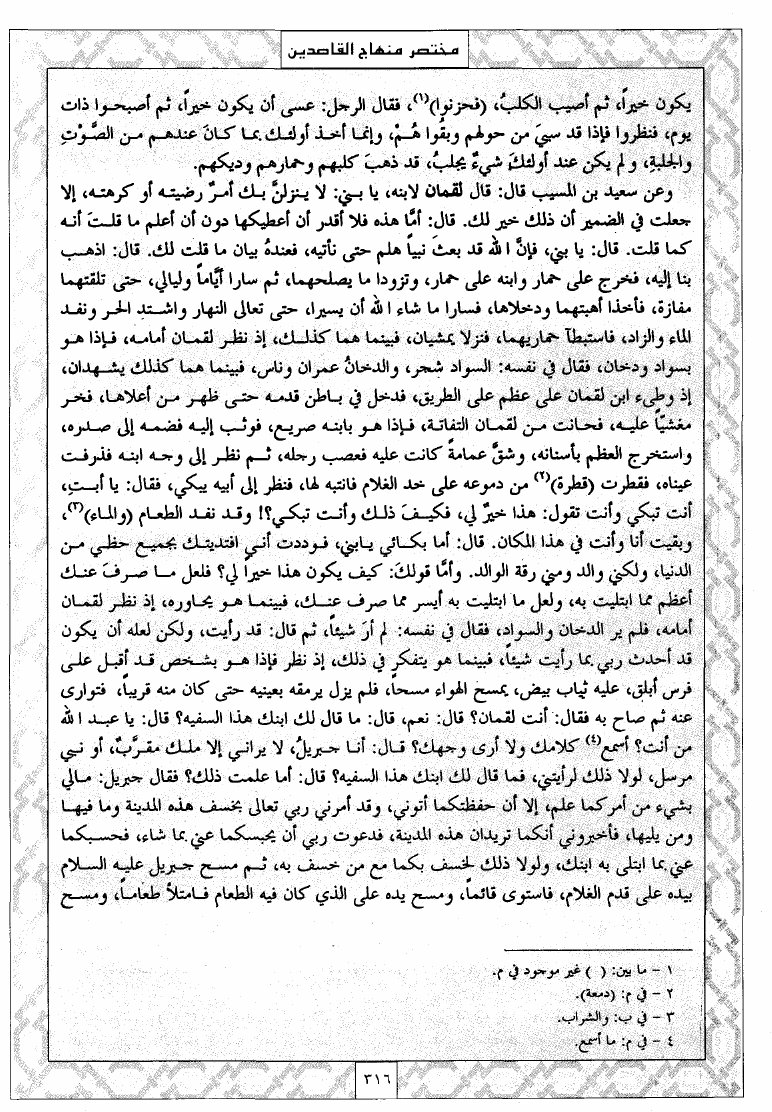 مختصر منهاج القاصدين
يكون خيراً، ثم أصيب الكلبُ، (فحزنوا)(١)، فقال الرجل: عسى أن يكون خيراً، ثم أصبحوا ذات
يوم، فنظروا فإذا قد سبيَ من حولهم وبقُوا هُمْ، وإنما أخذ أولئك بما كانَ عندهم من الصَّوْتِ
والجلبةِ، ولم يكن عند أولئكَ شيءٌ يجلبُ، قد ذهبَ كلبهم وحمارهم وديكهم.
وعن سعيد بن المسيب قال: قال لقمان لابنه، يا بني: لا ينزلنَّ بك أمرٌ رضيته أو كرهته، إلا
جعلت في الضمير أن ذلك خير لك. قال: أمَّا هذه فلا أقدر أن أعطيكها دون أن أعلم ما قلتَ أنه
كما قلت. قال: يا بني، فإنَّ الله قد بعثَ نبياً هلم حتى نأتيه، فعندهُ بيان ما قلت لك. قال: اذهب
بنا إليه، فخرج على حمار وابنه على حمار، وتزودا ما يصلحهما، ثم سارا أيَّاماً وليالي، حتى تلقتهما
مفازة، فأخذا أهبتهما ودخلاها، فسارا ما شاء الله أن يسيرا، حتى تعالى النهار واشتد الحر ونفد
الماء والزاد، فاستبطآ حماريهما، فنزلا يمشيان، فبينما هما كذلك، إذ نظر لقمان أمامه، فإذا هو
بسواد ودخان، فقال في نفسه: السواد شجر، والدخانُ عمران وناس، فبينما هما كذلك يشهدان،
إذ وطىء ابن لقمان على عظم على الطريق، فدخل في باطن قدمه حتى ظهر من أعلاها، فخر
مغشيّاً عليه، فحانت من لقمان التفاتة، فإذا هو بابنه صريع، فوثب إليه فضمه إلى صدره،
واستخرج العظم بأسنانه، وشقَّ عمامةً كانت عليه فعصب رجله، ثم نظر إلى وجه ابنه فذرفت
عيناه، فقطرت (قطرة)(٢) من دموعه على خد الغلام فانتبه لها، فنظر إلى أبيه يبكي، فقال: يا أبتِ،
أنت تبكي وأنت تقول: هذا خيرٌ لي، فكيفَ ذلك وأنت تبكي؟! وقد نفد الطعام (والماء)(٣)،
وبقيت أنا وأنت في هذا المكان. قال: أما بكائي يابني، فوددت أني افتديتك بجميع حظي من
الدنيا، ولكني والد ومني رقة الوالد. وأمَّا قولكَ: كيف يكون هذا خيراً لي؟ فلعل ما صرفَ عنك
أعظم مما ابتليت به، ولعل ما ابتليت به أيسر مما صرف عنك، فبينما هو يحاوره، إذ نظر لقمان
أمامه، فلم ير الدخان والسواد، فقال في نفسه: لم أرَ شيئاً، ثم قال: قد رأيت، ولكن لعله أن يكون
قد أحدث ربي بما رأيت شيئاً، فبينما هو يتفكر في ذلك، إذ نظر فإذا هو بشخص قد أقبل على
فرس أبلق، عليه ثياب بيض، يمسح الهواء مسحاً، فلم يزل يرمقه بعينيه حتى كان منه قريباً، فتوارى
عنه ثم صاح به فقال: أنت لقمان؟ قال: نعم، قال: ما قال لك ابنك هذا السفيه؟ قال: يا عبد الله
من أنت؟ أسمع(٤) كلامك ولا أرى وجهك؟ قال: أنا جبريلُ، لا يراني إلا ملك مقربٌ، أو نبي
مرسل، لولا ذلك لرأيتني، فما قال لك ابنك هذا السفيه؟ قال: أما علمت ذلك؟ فقال جبريل: مالي
بشيء من أمركما علم، إلا أن حفظتكما أتوني، وقد أمرني ربي تعالى بخسف هذه المدينة وما فيها
ومن يليها، فأخبروني أنكما تريدان هذه المدينة، فدعوت ربي أن يحبسكما عني بما شاء، فحسبكما
عني بما ابتلى به ابنك، ولولا ذلك لخسف بكما مع من خسف به، ثم مسح جبريل عليه السلام
بيده على قدم الغلام، فاستوى قائماً، ومسح يده على الذي كان فيه الطعام فامتلأ طعاماً، ومسح
١ – ما بين: ( ) غير موجود في م.
٢ – في م: (دمعة).
٣ – في ب: والشراب.
٤ – في م: ما أسمع.
٣١٦